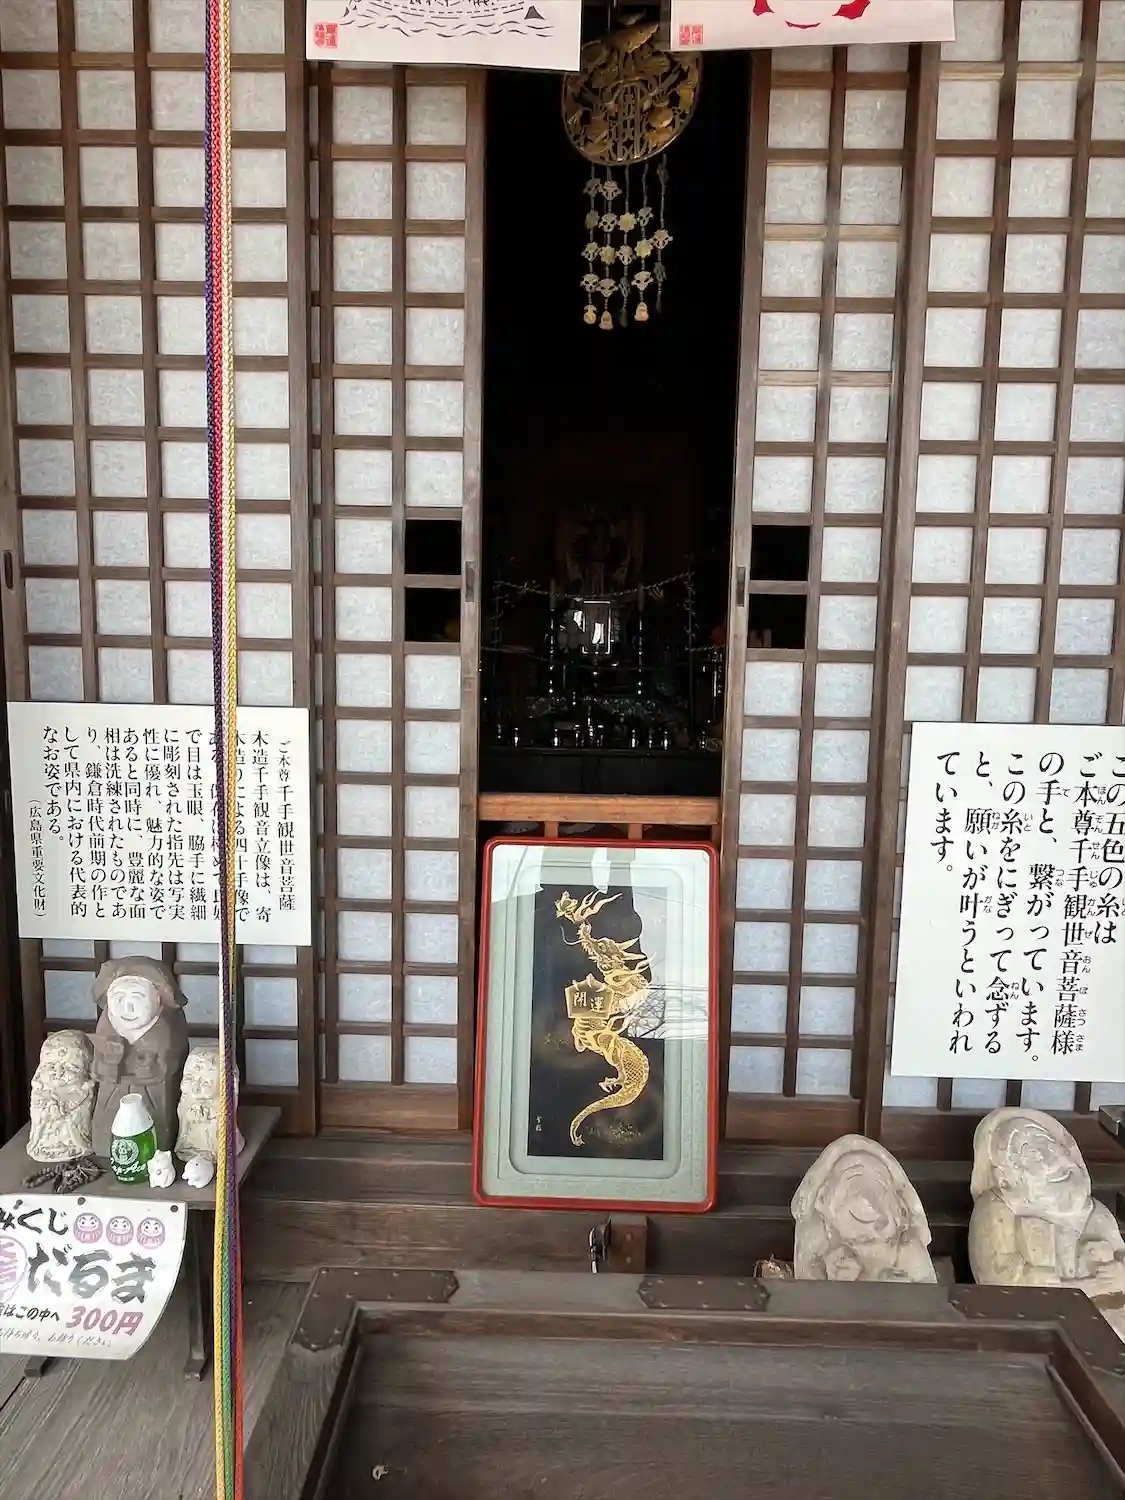 この五色の糸は
ご本尊千手観世音菩薩様
の手と、繋がっています。
この糸をにぎって念ずる
と、願いが叶うといわれ
ています。
ご本尊千手観世音菩薩
木造千手観音立像は、寄
木造りによる四十手像で
で目は玉眼、脇手に繊細
に彫刻された指先は写実
性に優れ、魅力的な姿で
あると同時に、豊麗な面
相は洗練されたものであ
り、鎌倉時代前期の作と
して県内における代表的
なお姿である。
(広島県重要文化財)
開運
みくじ
だるま
はこの中へ 300円